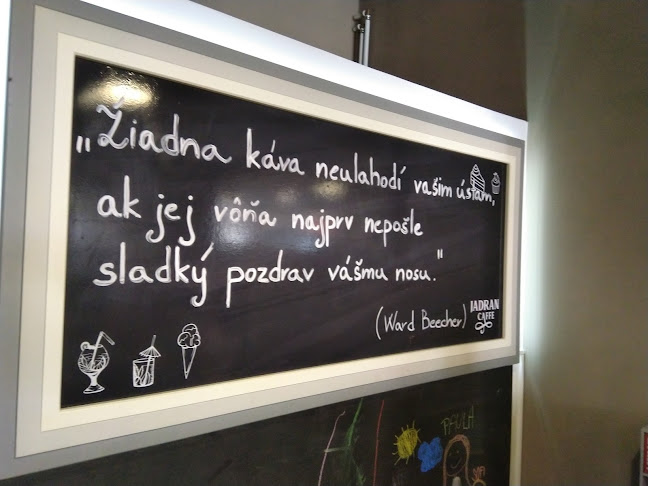 „Žiadna káva neulahodí vašim ústam,
ak jej vôňa najprv nepošle
sladký pozdrav vášmu nosu."
(Ward Beecher)
JADRAN
CAFFE
PAULA